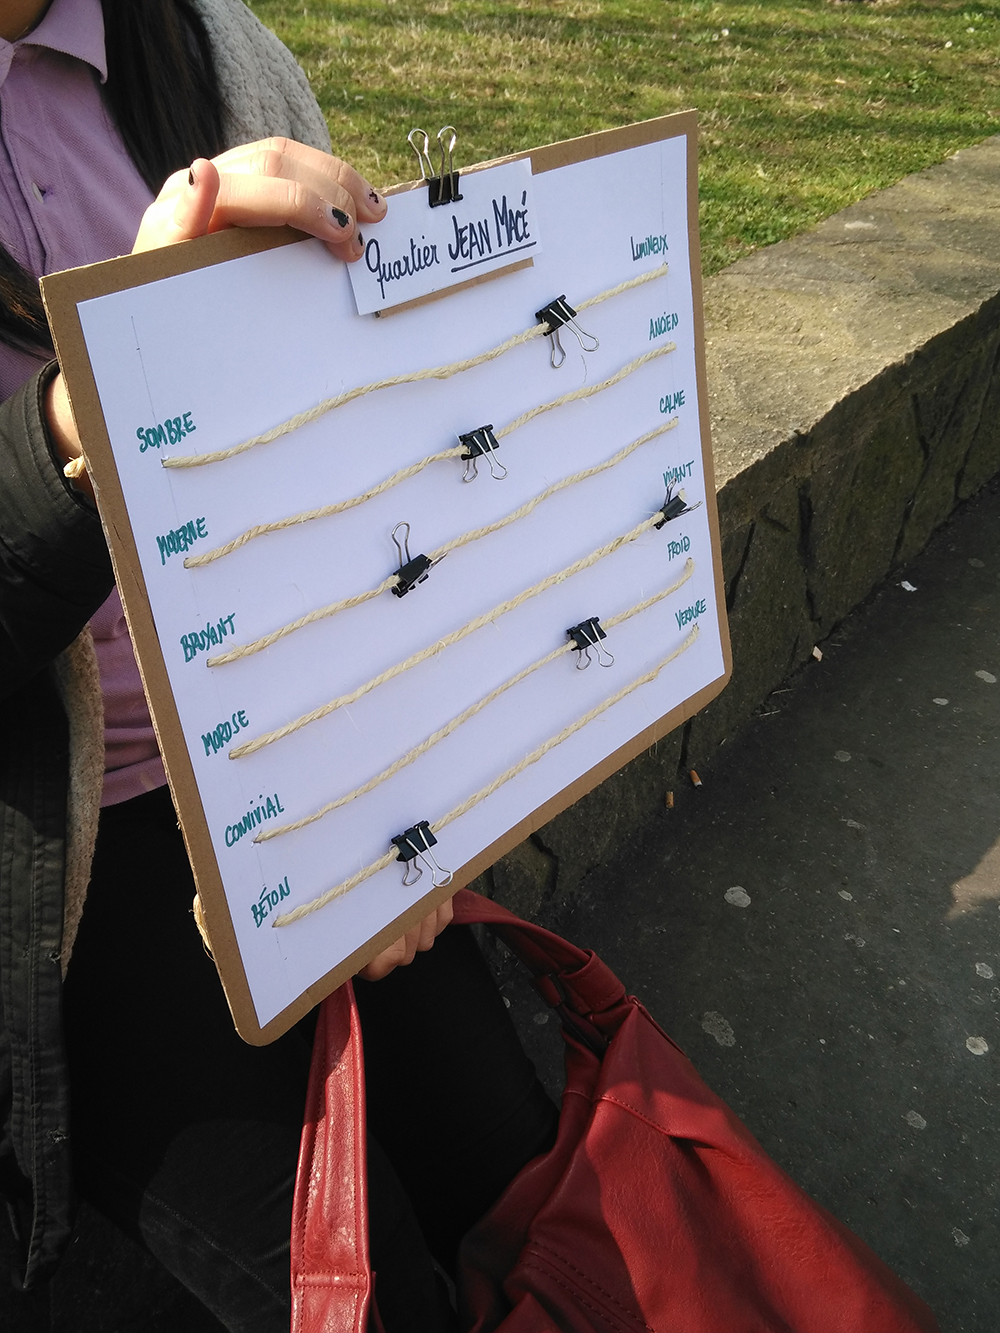 Quartier JEAN MACÉ
SOMBRE LUMINEUX
MODERNE ANCIEN
BRUYANT CALME
MOROSE VIVANT
CONVIVIAL FROID
BÉTON VERDURE